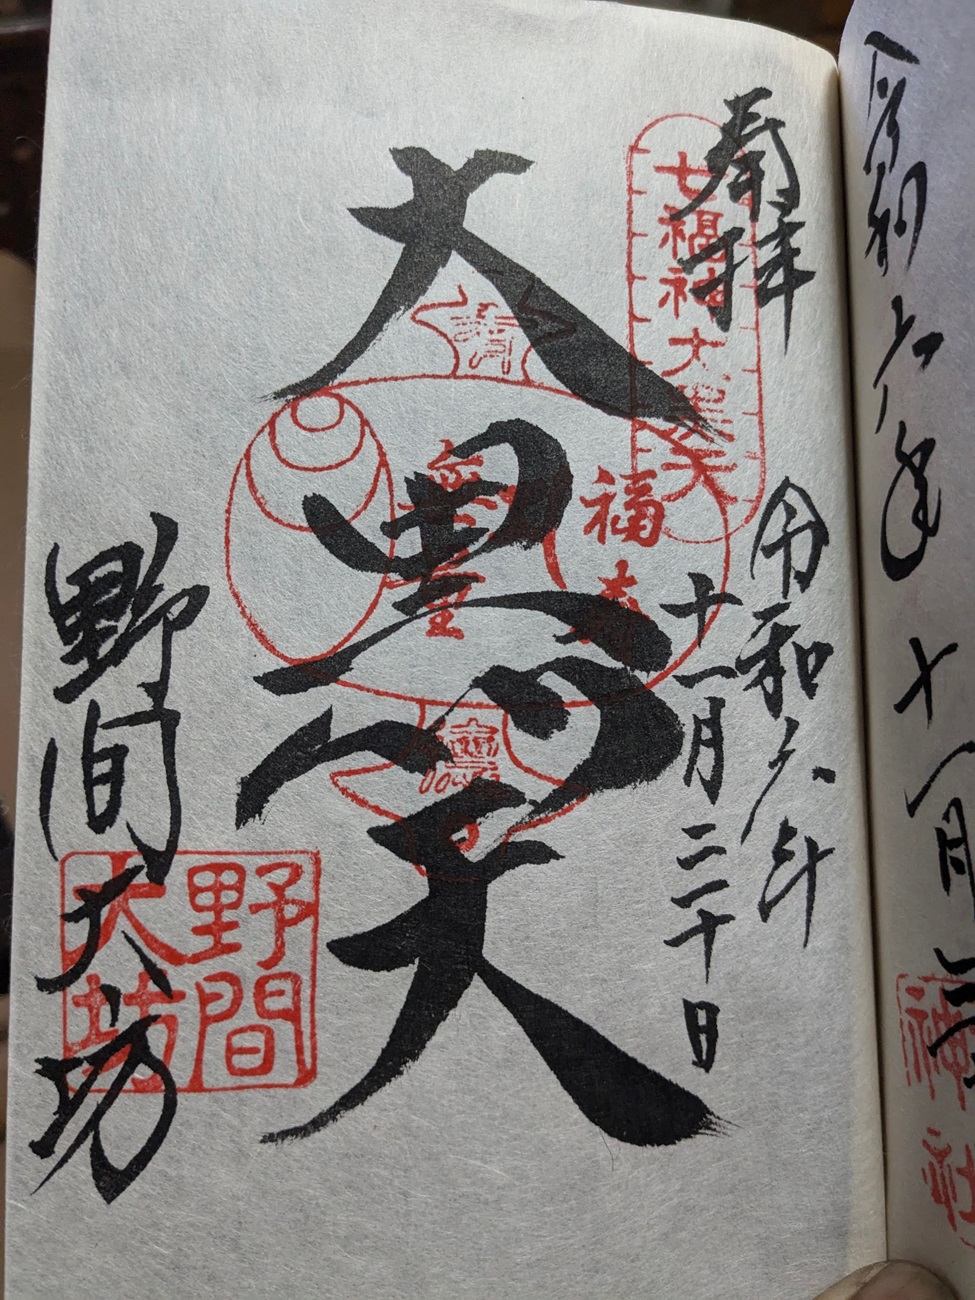 令和六年十
神社
奉拝
七福神大黒天
令和六年
十一月三十日
大黒天
福寿
野間大坊
野間
大坊